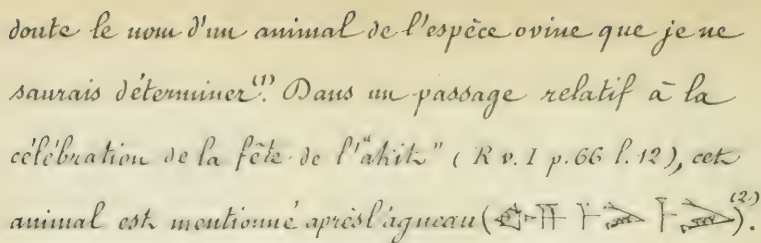 doute le nom d'un animal de l'espèce ovine que je ne
saurais déterminer (1). Dans un passage relatif à la
célébration de la fête de l'"akit" (R v. I p. 66 l. 12), cet
animal est mentionné après l'agneau ( (2)).